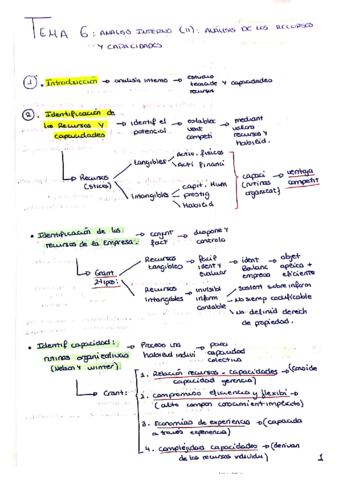 TEMA 6: ANALISIS INTERNO (II): ANALISIS DE LOS RECURSOS
Y CAPACIDADES
1. Introducción → analisis interno → estudio
recursos y capacidades
2. Identificación de
los Recursos y → identif el → establec → mediant
capacidades potencial vent valora
competi recursos y
Habilid.
Tangibles → Activ. físicos
Acti financi
→ Recursos capaci → ventaja
(Stocks) (rutinas competit
organizat.)
capit. Hum
Intangibles → prestig
Habilid
• Identificación de los → conjunt → dispone y
recursos de la Empresa: fact controla
Recursos → facil → ident → objet
tangibles ident y Balanc optica +
→ Grant evaluar empresa eficiente
2 tipos:
Recursos → invisibl → sustent sobre inform
Intangibles inform → No siemp codificable
contable → No definid derech
de propiedad.
• Identif capacidad: → Proceso una → para
rutinas organizativas habilidad indivi capacidad
(Nelson y Winter) colectiva
1. Relación recursos - capacidades → (conside
capacidad gerencia)
→ Grant: 2. compromiso eficiencia y flexibi →
(alto compon conocimient implícito)
3. Economías de experiencia → (capacida
a través experiencia)
4. complejidad capacidades → (derivan
de los recursos individu)
1